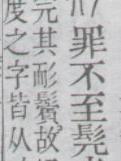 罪不至髡
完其耏鬢故
度之字皆从